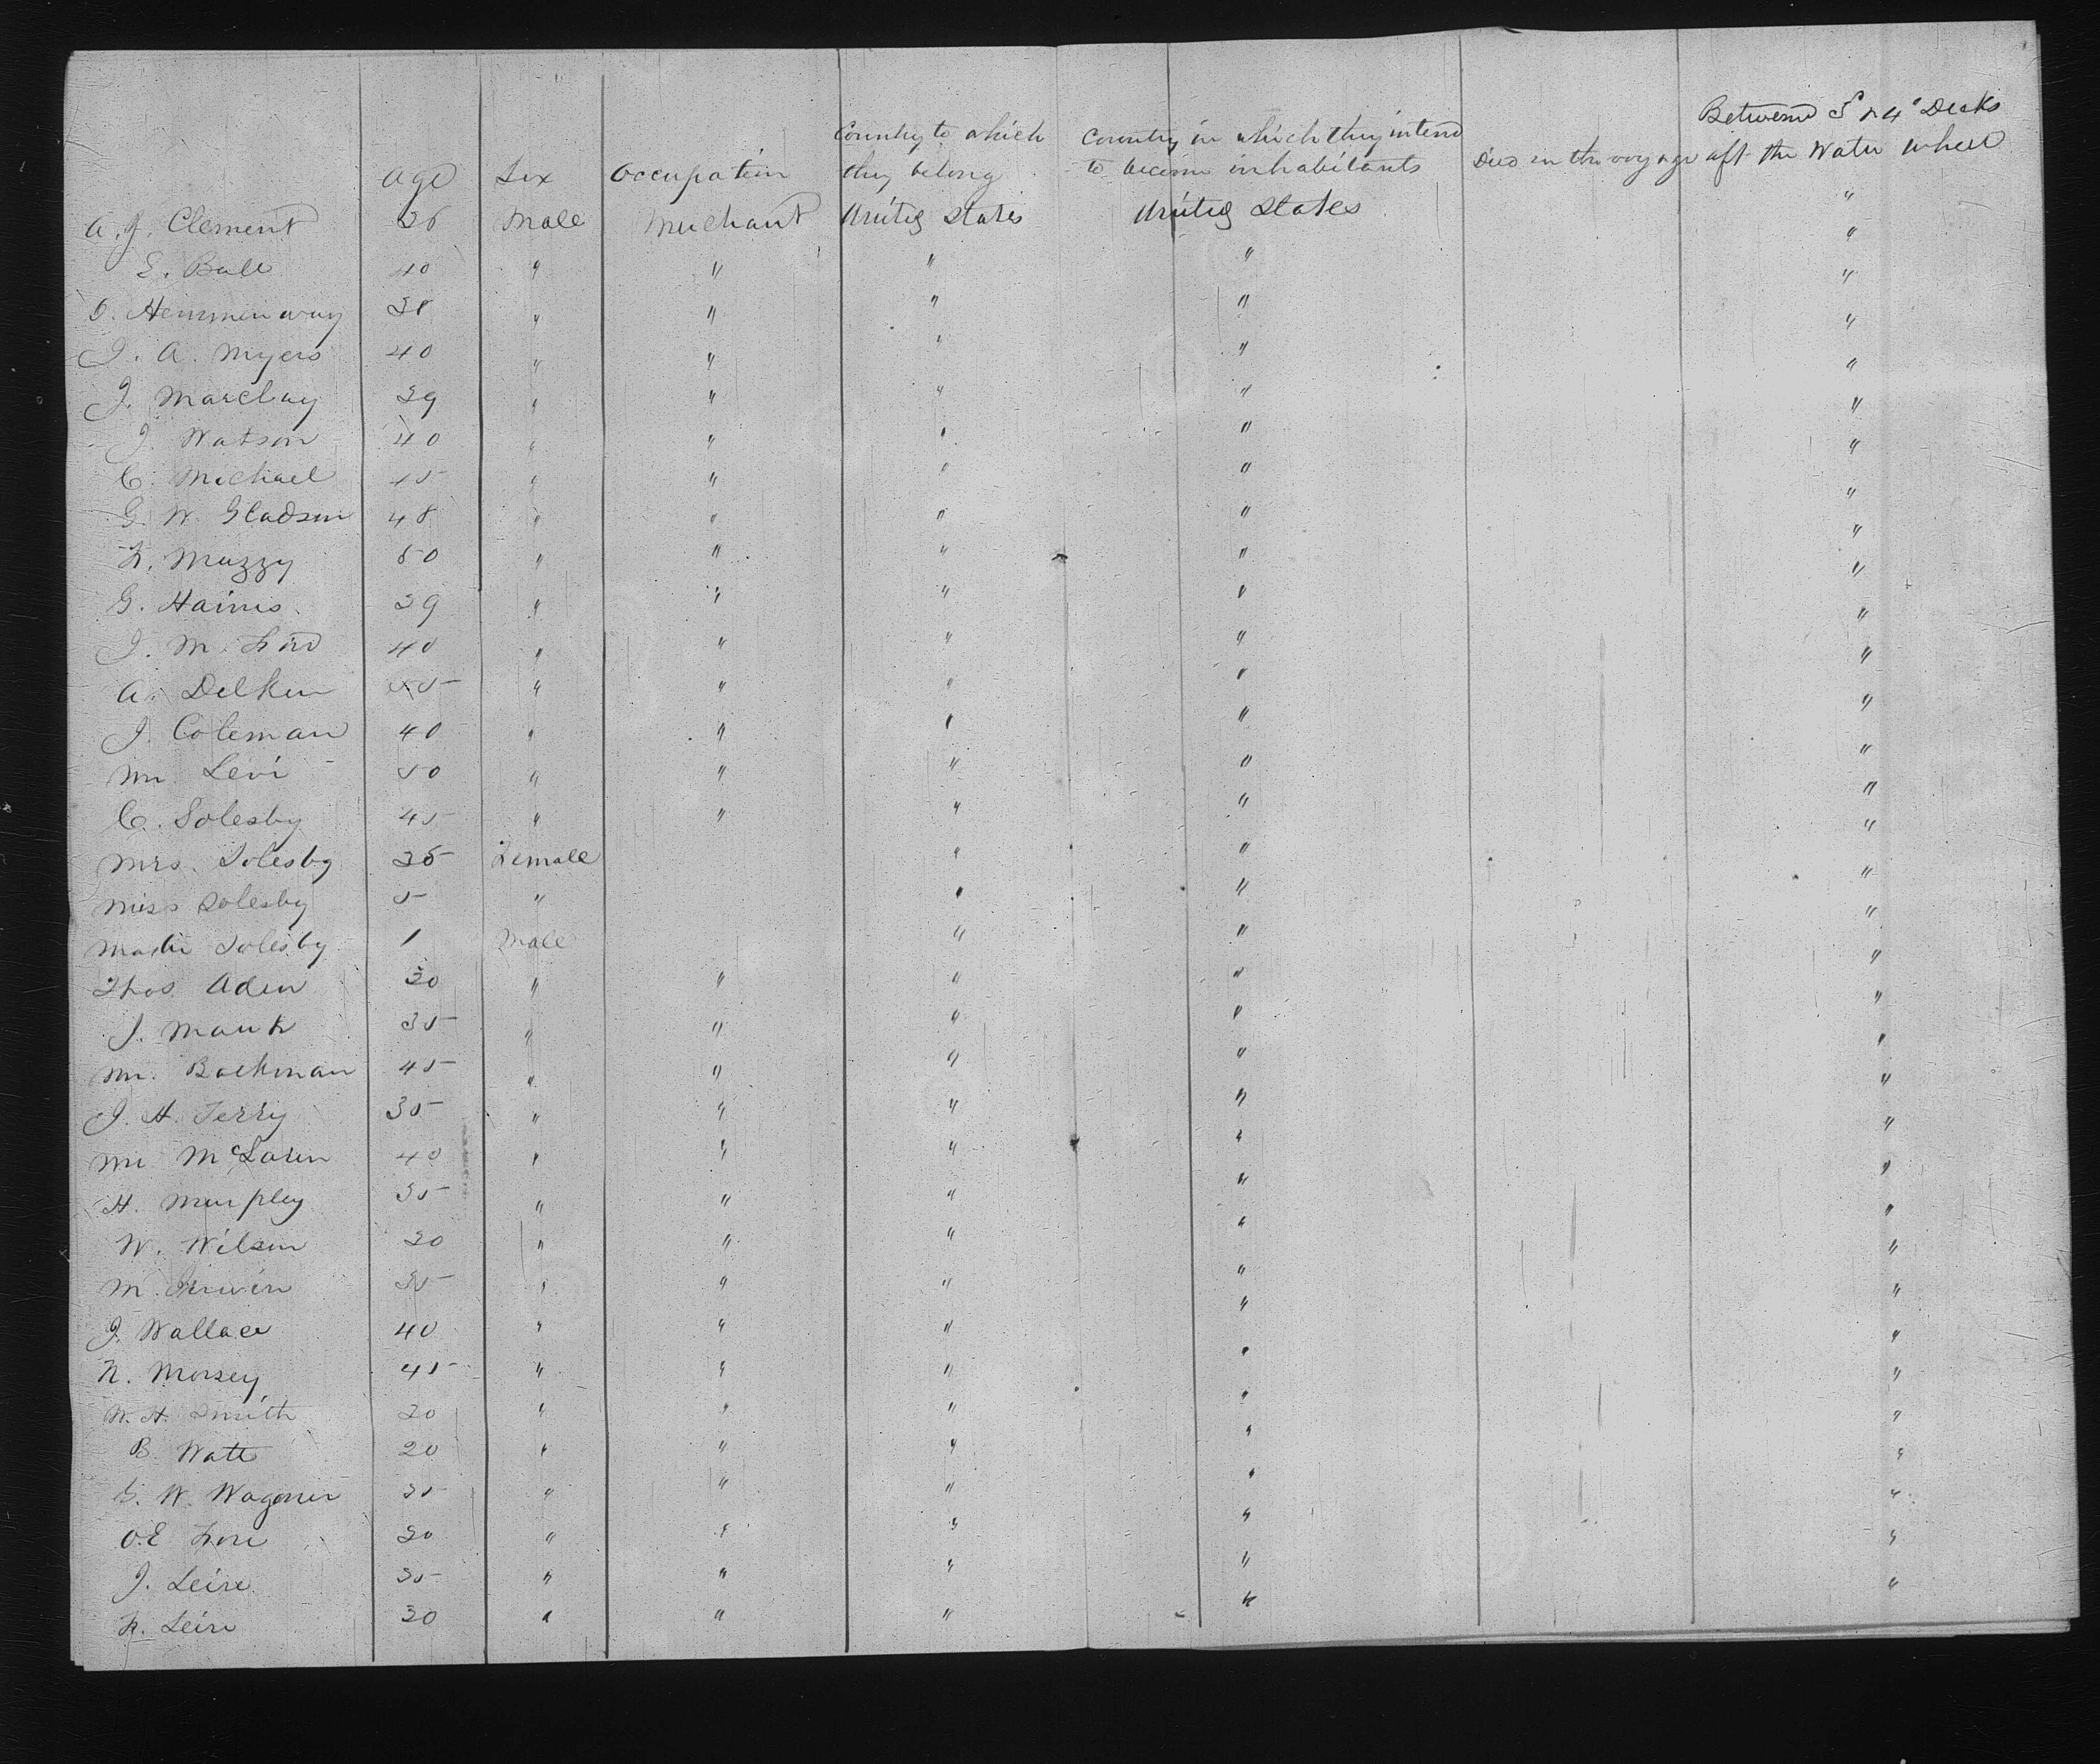 Between 3d & 4" Decks
Age Sex Occupation Country to which they belong Country in which they intend to become inhabitants Died on the voyage aft the Water wheel
A. J. Clement 36 Male Merchant United States United States "
E. Bale 40 " " " " "
Hemmenway 38 " " " " "
J. A. Myers 40 " " " " "
J. Marclay 39 " " " " "
J Watson 40 " " " " "
C. Michael 45 " " " " "
G. W. Gladson 48 " " " " "
Muzzy 50 " " " " "
G. Haines 39 " " " " "
J. M. 40 " " " " "
A. Delken 55 " " " " "
J. Coleman 40 " " " " "
Mr. Levi 50 " " " " "
C. Solesby 45 " " " " "
Mrs. Solesby 35 Female " " "
Miss Solesby 5 " " " "
Master Solesby 1 Male " " "
Thos Aden 30 " " " " "
J. Mank 35 " " " " "
Mr. Bockman 45 " " " " "
J. H. Terry 35 " " " " "
Mr McLaren 40 " " " " "
H. Murpley 35 " " " " "
W. Wilson 30 " " " " "
M. Irwin 35 " " " " "
J. Wallace 40 " " " " "
N. Morsey 45 " " " " "
W. H. Smith 20 " " " " "
B. Watts 20 " " " " "
G. W. Wagoner 35 " " " " "
O. E 30 " " " " "
J. Leire 35 " " " " "
Leire 30 " " " "